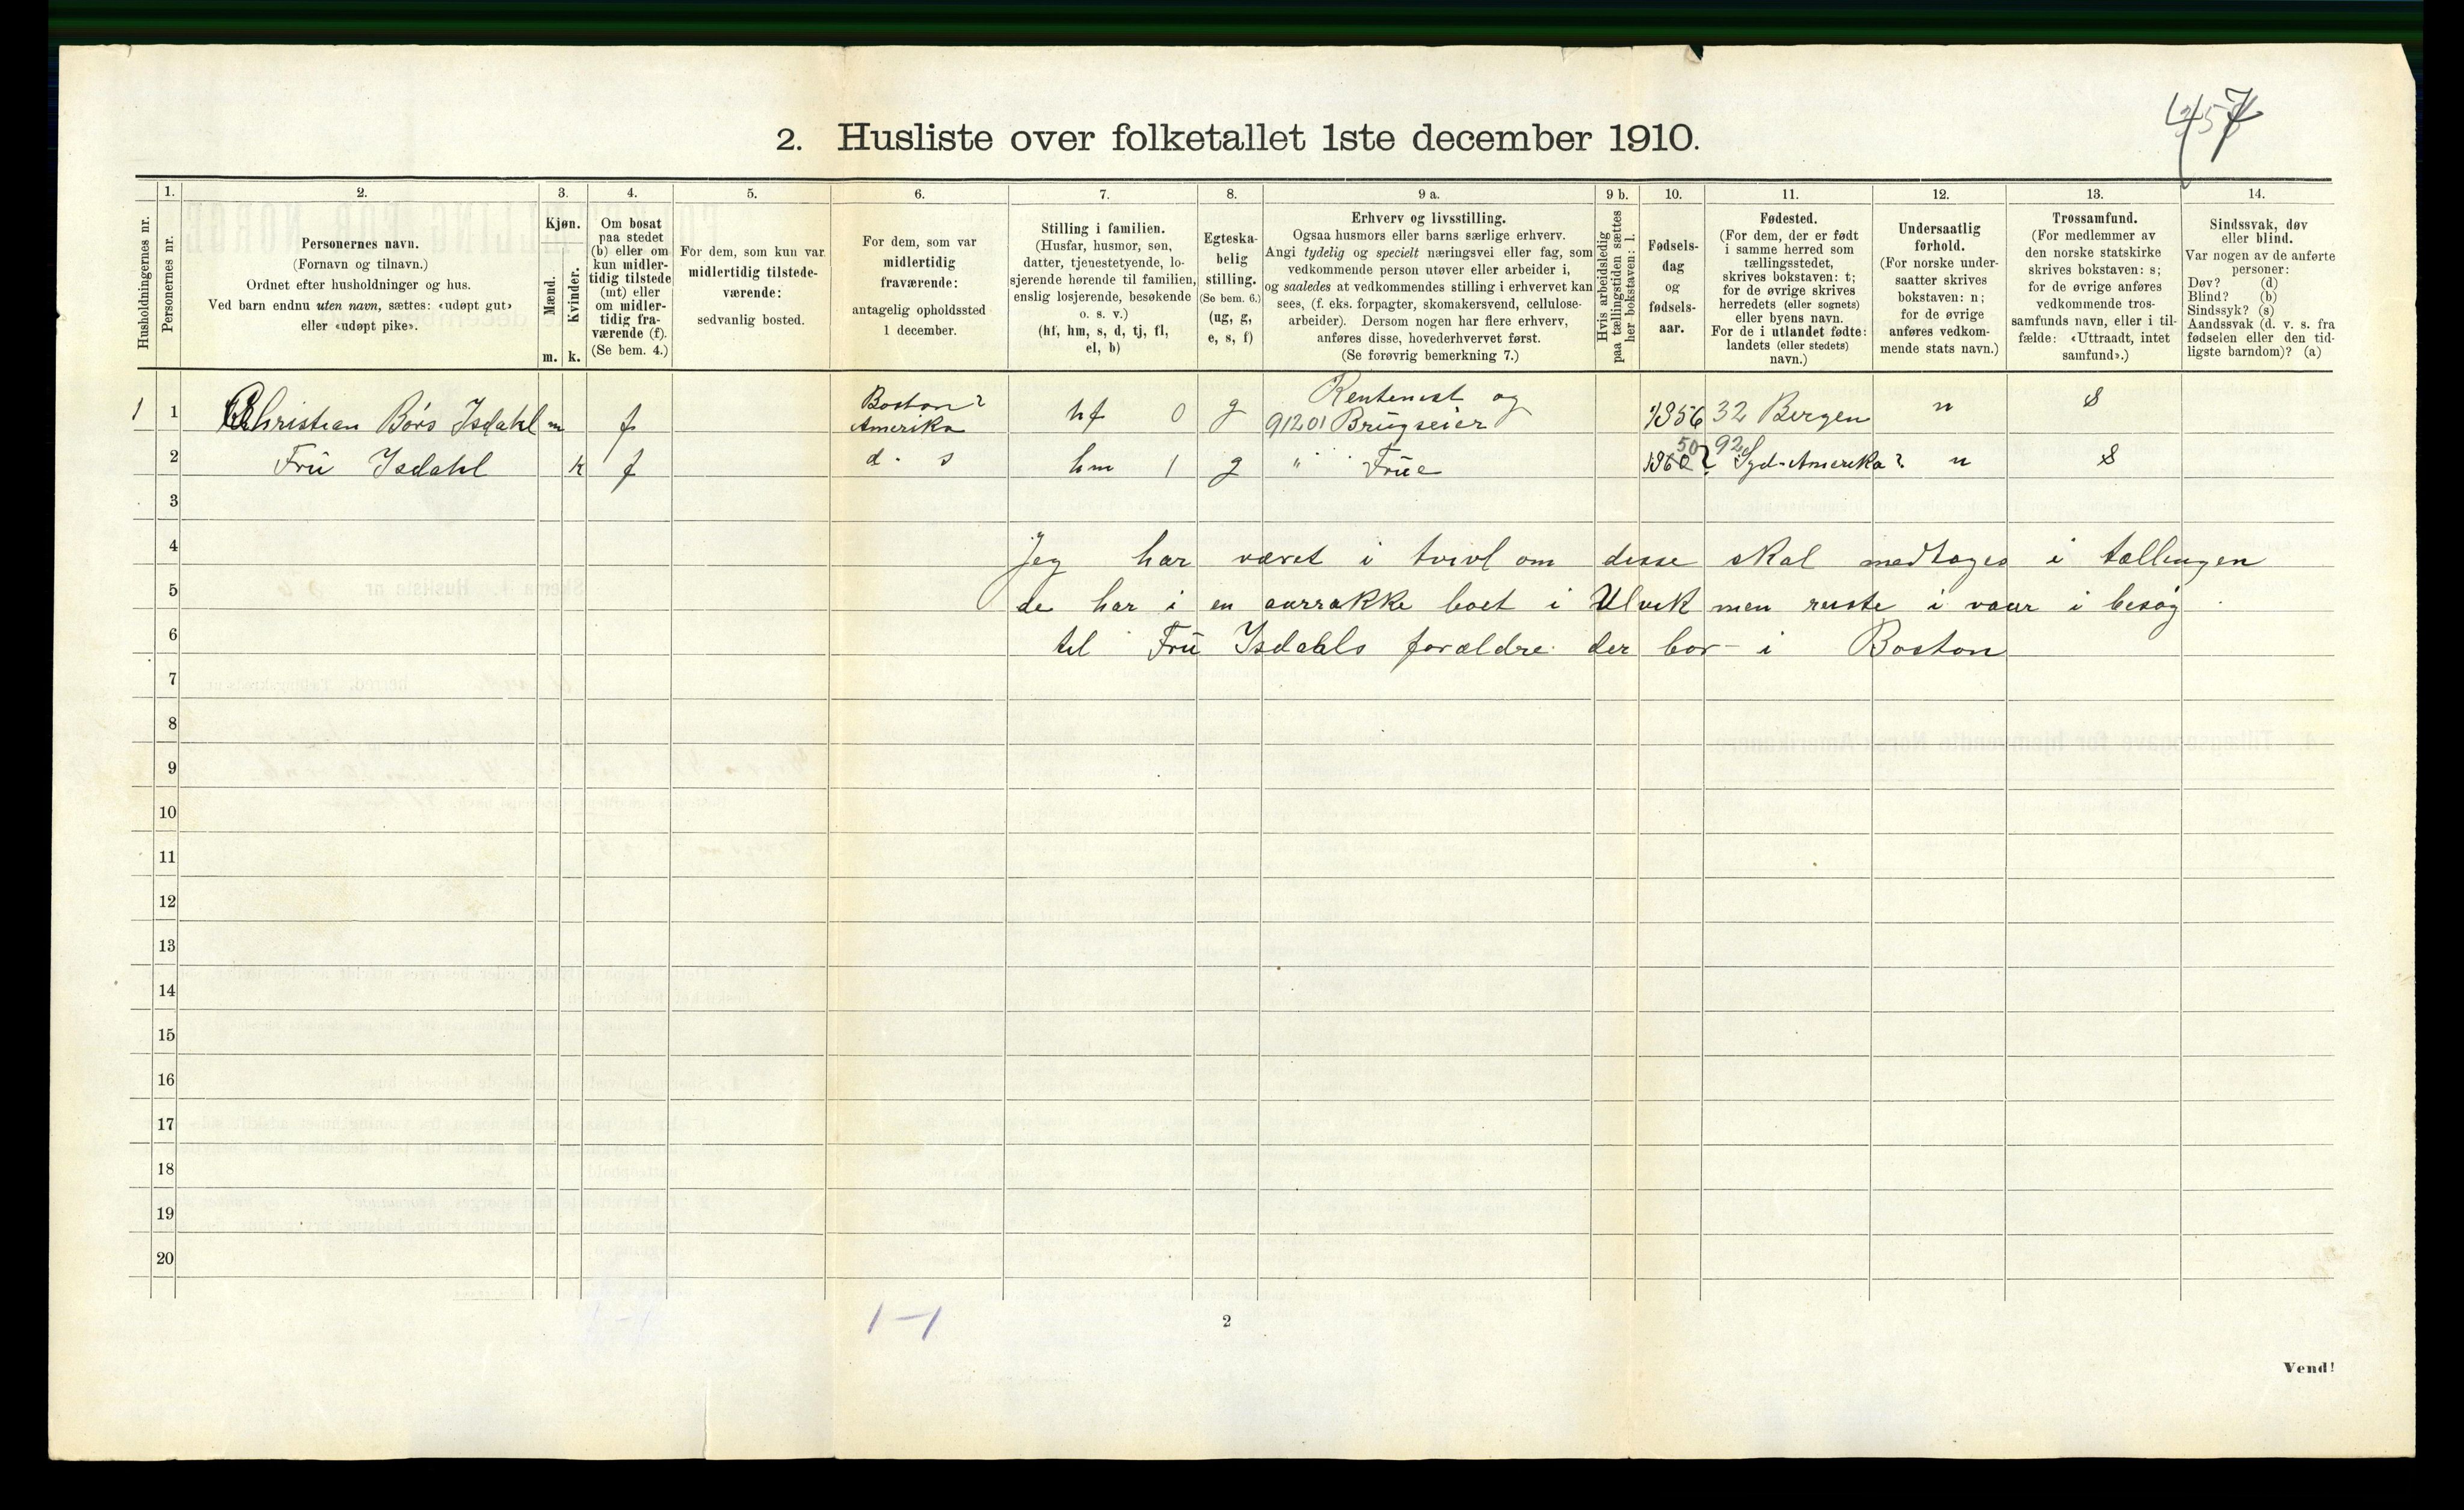 457
2. Husliste over folketallet 1ste december 1910.
Husholdningernes nr.
1.
Personernes nr.
2.
Personernes navn.
(Fornavn og tilnavn.)
Ordnet efter husholdninger og hus.
Ved barn endnu uten navn, sættes: «udøpt gut»
eller «udøpt pike».
3.
Kjøn.
Mænd.
Kvinder.
m. k.
4.
Om bosat
paa stedet
(b) eller om
kun midler-
tidig tilstede
(mt) eller
om midler-
tidig fra-
værende (f).
(Se bem. 4.)
5.
For dem, som kun var
midlertidig tilstede-
værende:
sedvanlig bosted.
6.
For dem, som var
midlertidig
fraværende:
antagelig opholdssted
1 december.
7.
Stilling i familien.
(Husfar, husmor, søn,
datter, tjenestetyende, lo-
sjerende hørende til familien,
enslig losjerende, besøkende
o. s. v.)
(hf, hm, s, d, tj, fl,
el, b)
8.
Egteska-
belig
stilling.
(Se bem. 6.)
(ug, g,
e, s, f)
9 a.
Erhverv og livsstilling.
Ogsaa husmors eller barns særlige erhverv.
Angi tydelig og specielt næringsvei eller fag, som
vedkommende person utøver eller arbeider i,
og saaledes at vedkommendes stilling i erhvervet kan
sees, (f. eks. forpagter, skomakersvend, cellulose-
arbeider). Dersom nogen har flere erhverv,
anføres disse, hovederhvervet først.
(Se forøvrig bemerkning 7.)
9 b.
Hvis arbeidsledig
paa tællingstiden sættes
her bokstaven: l.
10.
Fødsels-
dag
og
fødsels-
aar.
11.
Fødested.
(For dem, der er født
i samme herred som
tællingsstedet,
skrives bokstaven: t;
for de øvrige skrives
herredets (eller sognets)
eller byens navn.
For de i utlandet fødte:
landets (eller stedets)
navn.)
12.
Undersaatlig
forhold.
(For norske under-
saatter skrives
bokstaven: n;
for de øvrige
anføres vedkom-
mende stats navn.)
13.
Trossamfund.
(For medlemmer av
den norske statskirke
skrives bokstaven: s;
for de øvrige anføres
vedkommende tros-
samfunds navn, eller i til-
fælde: «Uttraadt, intet
samfund».)
14.
Sindssvak, døv
eller blind.
Var nogen av de anførte
personer:
Døv? (d)
Blind? (b)
Sindssyk? (s)
Aandssvak (d. v. s. fra
fødselen eller den tid-
ligste barndom)? (a)
1 1 Christian Börs Isdahl m f Boston? Amerika hf 0 g 91201 Rentenist og Brugseier 1856 32 Bergen n S
2 Frü Isdahl k f d. s hm 1 g " Früe 1860 50 ? 92 Syd-Amerika? n S
3
4 Jeg har været i tvivl om disse skal medtages i tællingen
5 de har i en aarrække boet i Ulvik men reiste i vaar i besøg
6 til Frü Isdahls forældre der bor i Boston
7
8
9
10
11
12
13
14
15
16
17
18
19
20
1-1
2
Vend!